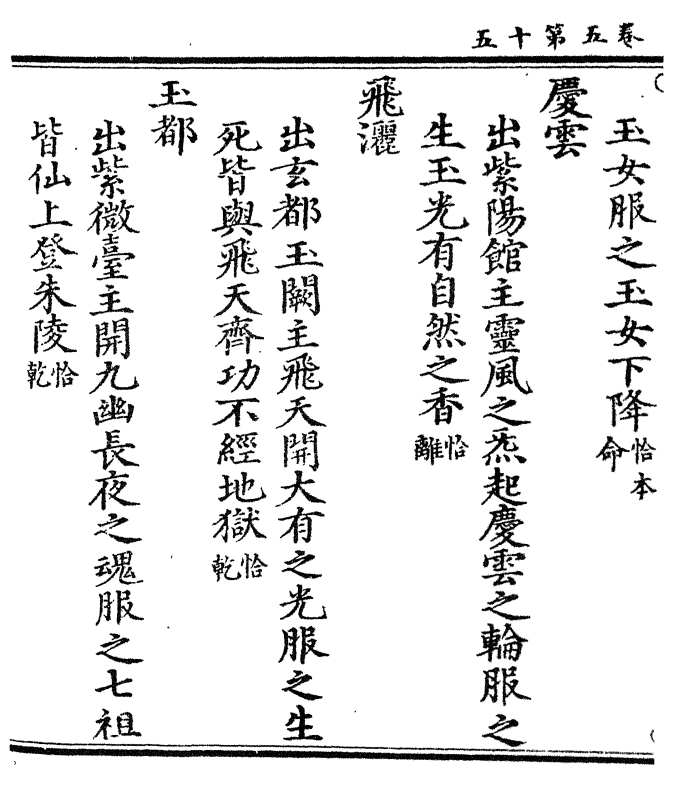 卷五第十五
玉女服之玉女下降恰本命
慶雲
出紫陽館主靈風之炁起慶雲之輪服之
生玉光有自然之香恰離
飛灑
出玄都玉闕主飛天開大有之光服之生
死皆與飛天齊功不經地獄恰乾
玉都
出紫微臺主開九幽長夜之魂服之七祖
皆仙上登朱陵恰乾